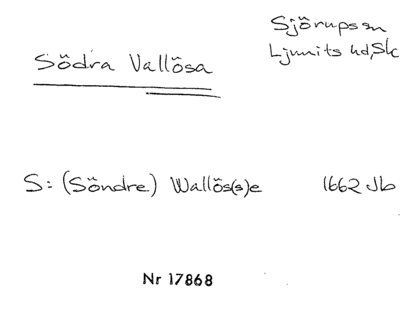 Sjörups sn
Ljunits hd, Sk
Södra Vallösa
S: (Söndre) Wallös(s)e 1662 Jb
Nr 17868